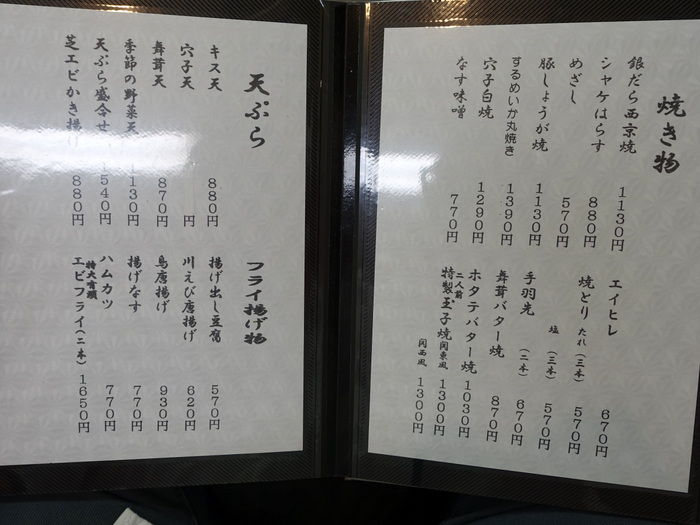 焼き物
銀だら西京焼 1130円
シャケはらす 880円
めざし 570円
豚しょうが焼 1130円
するめいか丸焼き 1390円
穴子白焼 1290円
なす味噌 770円
エイヒレ 670円
焼とり たれ(三本) 570円
塩(三本) 570円
手羽先(二本) 670円
舞茸バター焼 870円
ホタテバター焼 1030円
二人前 特製玉子焼 関東風 1300円
関西風 1300円
天ぷら
キス天 880円
穴子天 円
舞茸天 870円
季節の野菜天 1130円
天ぷら盛合せ 1540円
芝エビかき揚げ 880円
フライ揚げ物
揚げ出し豆腐 570円
川えび唐揚げ 620円
鳥唐揚げ 930円
揚げなす 770円
ハムカツ 770円
特大有頭 エビフライ(二本) 1650円